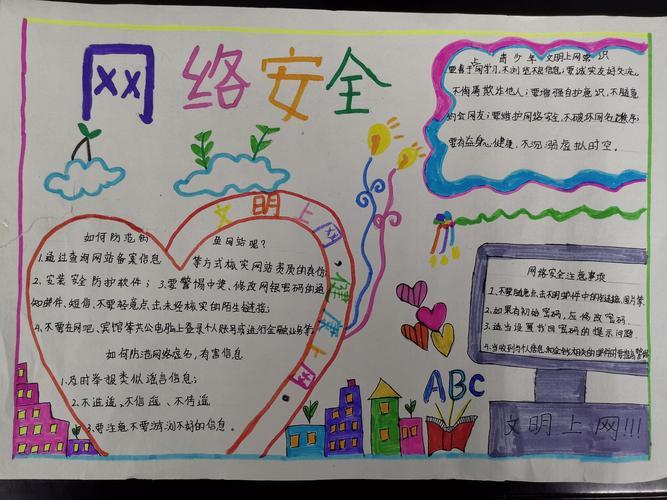 网络安全
全国青少年文明上网常识
要善于网学习,不浏览不良信息;要诚实友好交流,
不侮辱欺诈他人;要增强自护意识,不随意
约会网友;要维护网络安全,不破坏网络秩序;
要有益身心健康,不沉溺虚拟时空。
文明上网,健康上网。
如何防范钓鱼网站呢?
1.通过查询网站备案信息等方式核实网站资质的真伪
2.安装安全防护软件;3.要警惕中奖、修改网银密码的通
知邮件、短信,不要轻意点击未经核实的陌生链接;
4.不要在网吧、宾馆等公共电脑上登录个人账号或进行金融业务等。
如何防范网络虚假、有害信息
1.及时举报类似谣言信息;
2.不造谣、不信谣、不传谣
3.要注意不要浏览不好的信息。
网络安全注意事项
1.不要随意点击不明邮件中的链接、图片等
2.如果有初始密码,应修改密码
3.适当设置书回密码的提示问题
4.当收到与个人信息
ABC
文明上网!!!